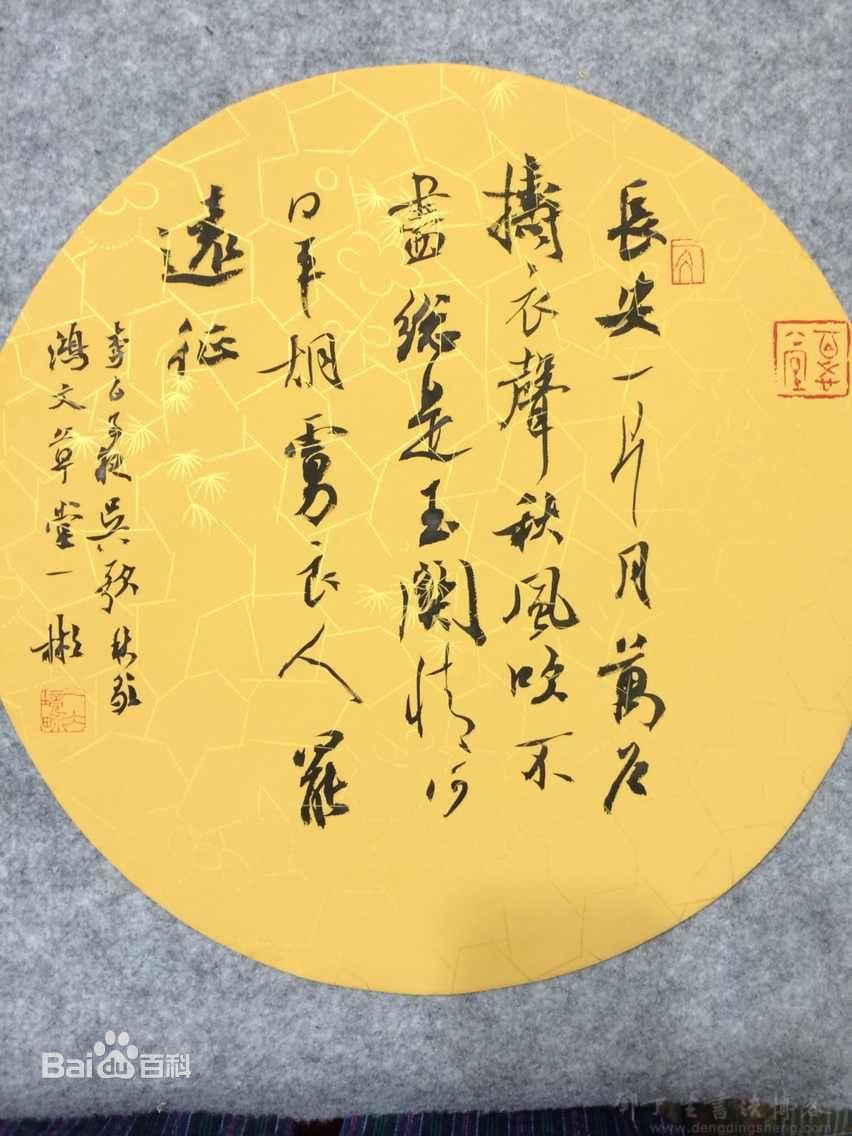 長安一片月萬戶
擣衣聲秋風吹不
盡總是玉關情何
日平胡虜良人罷
遠征
李白子夜吳歌秋歌
鴻文草堂一彬
Bai百科
鄧丁生書法博客
www.dengdingsheng.com